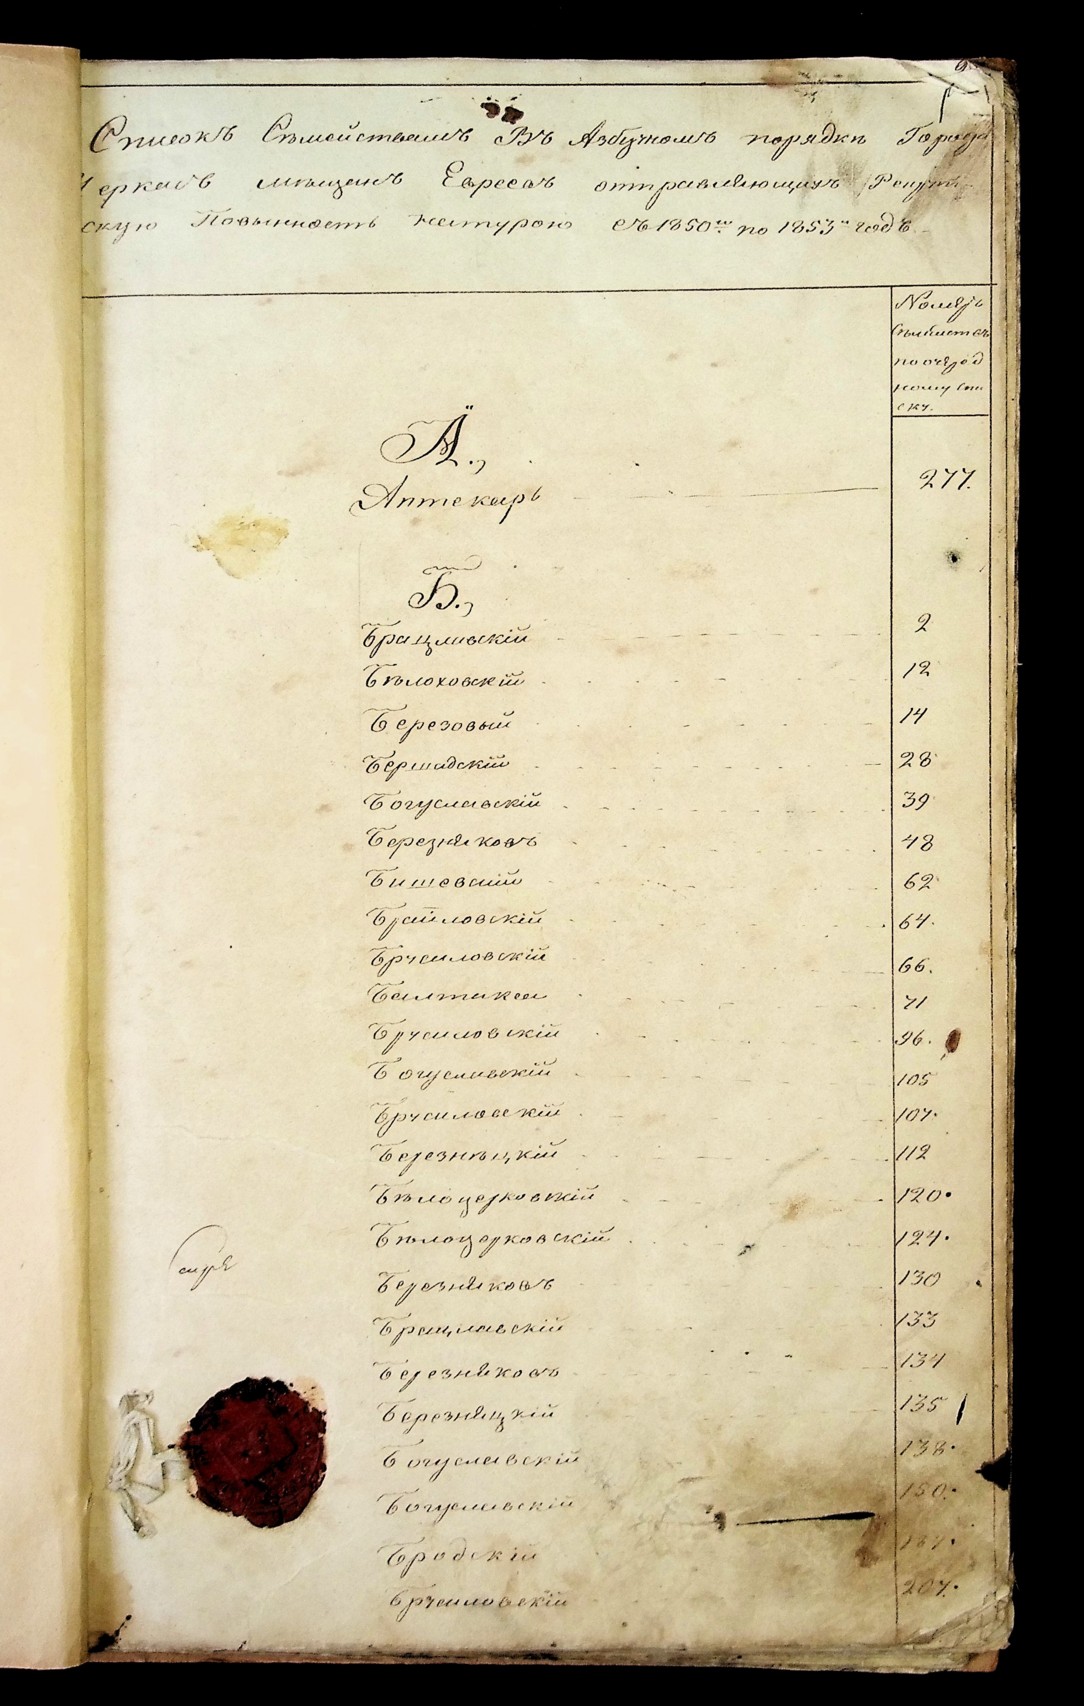 Списокъ Съмействамъ Въ Азбучномъ порядкъ Города
Черкасъ мъщанъ Евреевъ отправляющихъ Рекрут
скую Повинность натурою съ 1850го по 1853й годъ
Номеръ
Съмействъ
по очеред
ному спи
ску.
А.
Аптекарь 277.
Б.
Брацлавскій 2
Бълоховскій 12
Березовый 14
Бершадскій 28
Богуславскій 39
Березняковъ 48
Бишевскій 62
Браиловскій 64.
Брусиловскій 66.
Балтакса 71
Брусиловскій 96.
Богуславскій 105
Брусиловскій 107.
Березнъцкій 112
Бълоцерковскій 120.
Бълоцерковскій 124.
Березняковъ 130
Брацлавскій 133
Березняковъ 134
Березняцкій 135
Богуславскій 138.
Богуславскій 150.
Бродскій
Брусиловскій 207.